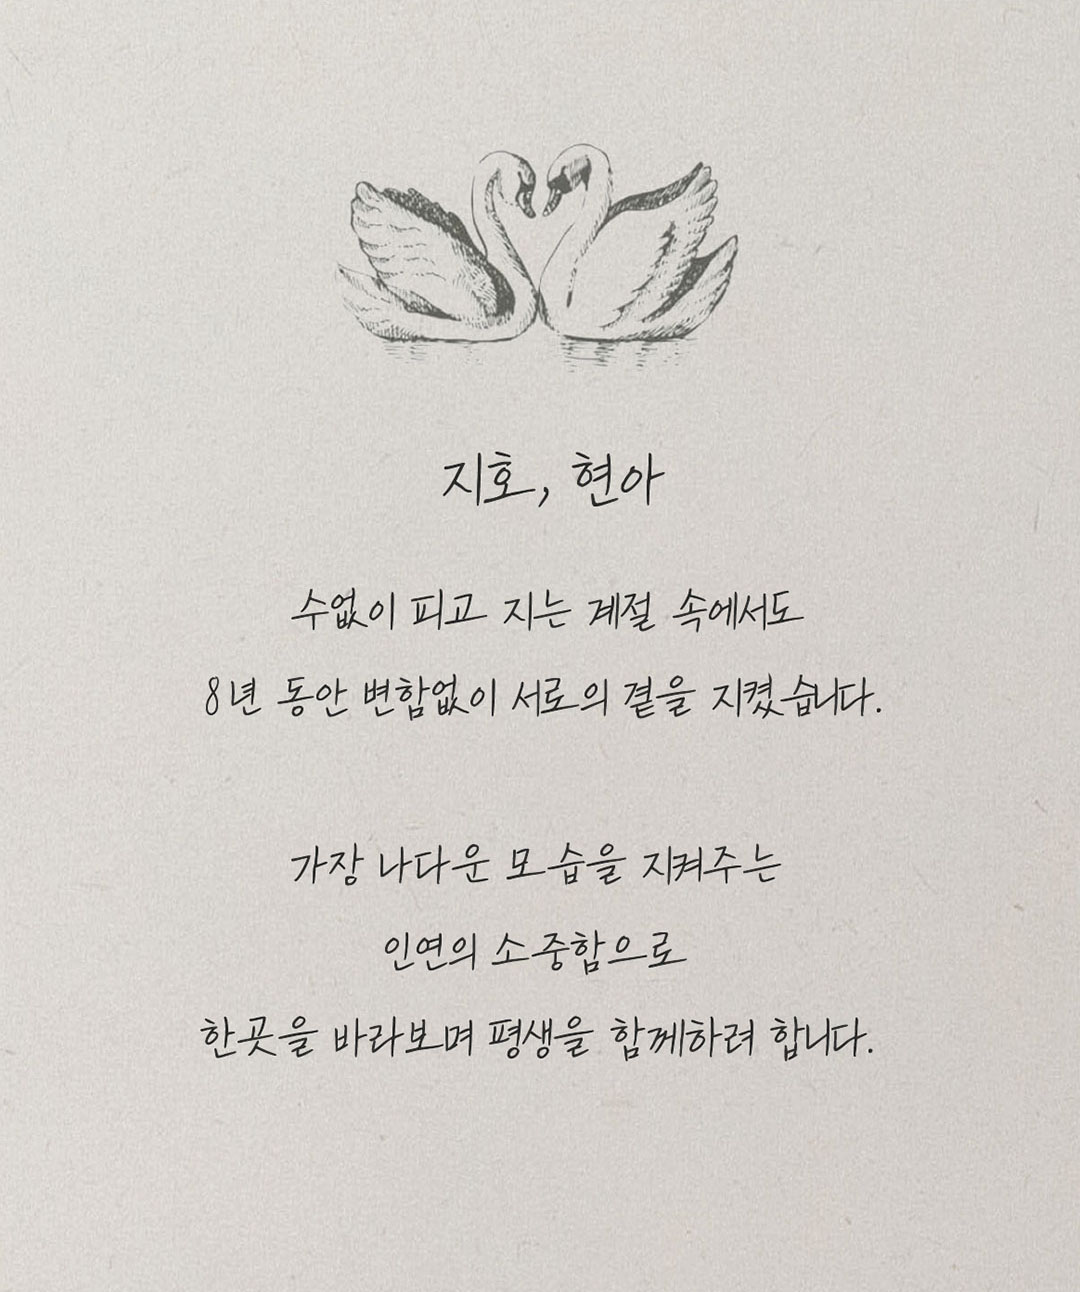 지호, 현아
수없이 피고 지는 계절 속에서도
8년 동안 변함없이 서로의 곁을 지켰습니다.
가장 나다운 모습을 지켜주는
인연의 소중함으로
한곳을 바라보며 평생을 함께하려 합니다.